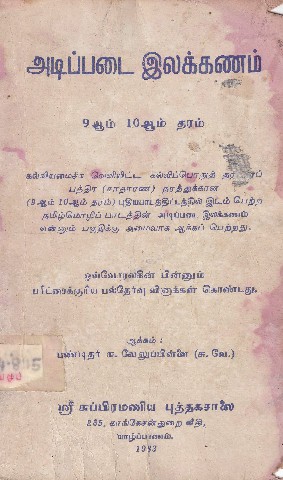 அடிப்படை இலக்கணம்
9ஆம் 10ஆம் தரம்
கல்வியமைச்சு வெளியிட்ட கல்விப்பொதுத் தராதரப்
பத்திர (சாதாரண) தரத்துக்கான
(9ஆம் 10ஆம் தரம்) புதியபாடத்திட்டத்தில் இடம் பெற்ற
தமிழ்மொழிப் பாடத்தின் அடிப்படை இலக்கணம்
என்னும் பகுதிக்கு அமைவாக ஆக்கப் பெற்றது.
ஒவ்வோரலகின் பின்னும்
பரீட்சைக்குரிய பல்தேர்வு வினாக்கள் கொண்டது.
ஆக்கம் :
பண்டிதர் க. வேலுப்பிள்ளை (சு. வே.)
ஸ்ரீ சுப்பிரமணிய புத்தகசாலை
235, காங்கேசன்துறை வீதி,
யாழ்ப்பாணம்.
1983